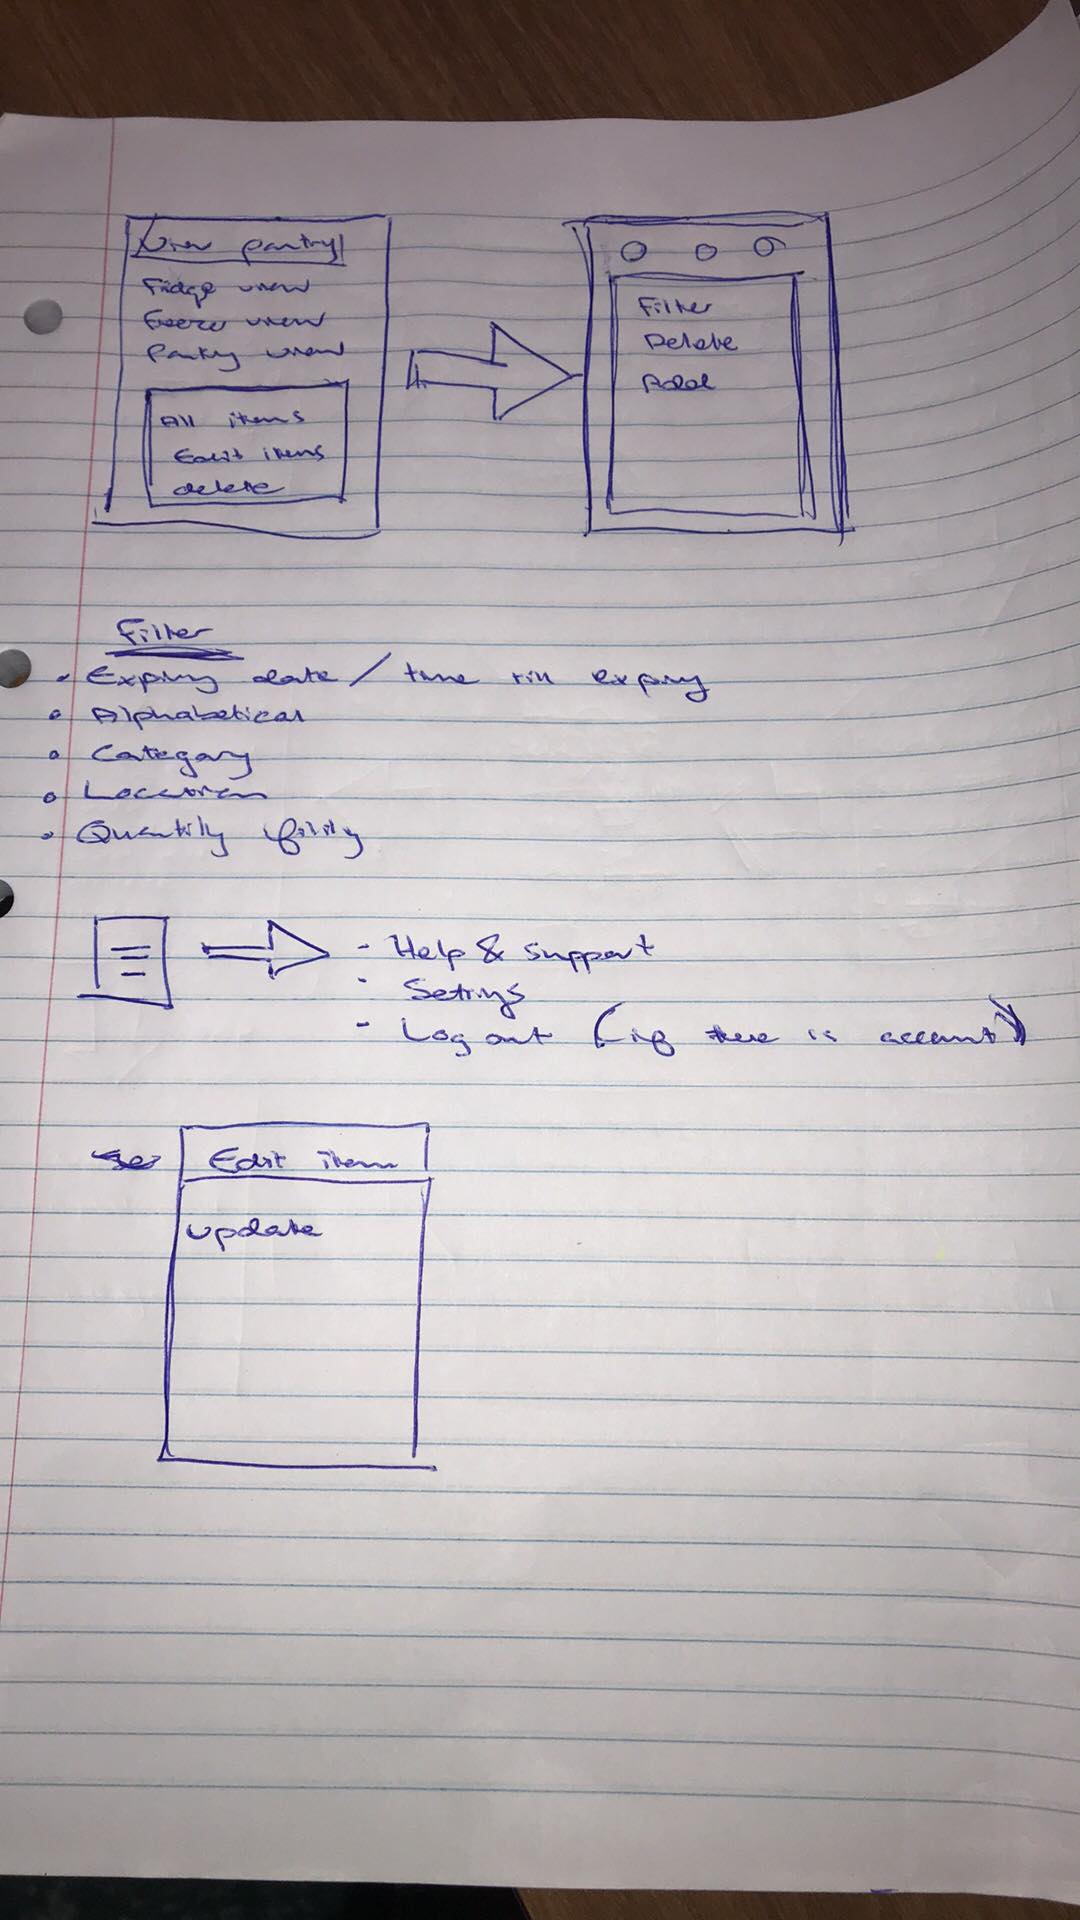 View pantry
Fridge view
Freezer view
Pantry view
All items
Edit items
delete
Filter
Delete
Add
Filter
Expiry date / time till expiry
Alphabetical
Category
Location
Quantity
- Help & support
- Settings
- Log out (if there is account)
Edit item
update